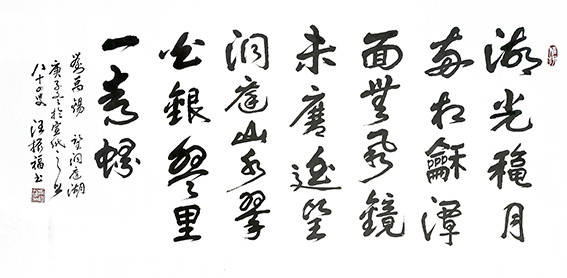 湖光穐月
兩相龢潭
面無風鏡
未磨遙望
洞庭山水翠
白銀盤里
一青螺
劉禹錫 望洞庭湖
庚子冬於宣紙之鄉
八十叟 汪福書